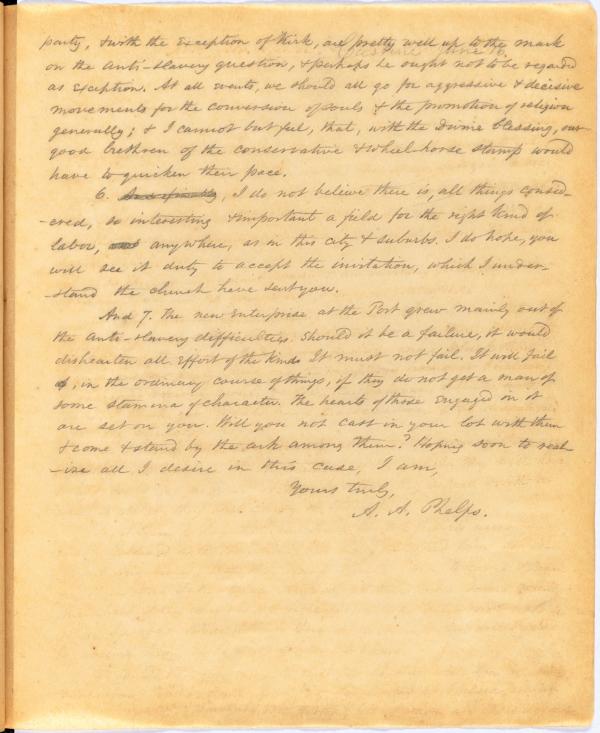 party, & with the Exception of Kirk, are pretty well up to the mark
on the Anti-slavery question, & perhaps he ought not to be regarded
as Exception. At all events, we should all go for aggressive & decisive
movements for the conversion of souls & the promotion of religion
generally; & I cannot but feel, that, with the Divine blessing, our
good brethren of the conservative & wheel-horse stamp would
have to quicken their pace.
6. And finally, I do not believe there is, all things consid-
-ered, so interesting & important a field for the right kind of
labor, anywhere, as in this city & suburbs. I do hope, you
will see it duty to accept the invitation, which I under-
-stand the church have sent you.
And 7. The new Enterprise at the Port grew mainly out of
the Anti-slavery difficulties. Should it be a failure, it would
dishearten all Effort of the kind. It must not fail. It will fail
, in the ordinary course of things, if they do not get a man of
some stamina of character. The hearts of those Engaged in it
are set on you. Will you not cast in your lot with them
& come & stand by the ark among them? Hoping soon to real-
-ize all I desire in this case, I am,
Yours truly,
A. A. Phelps.